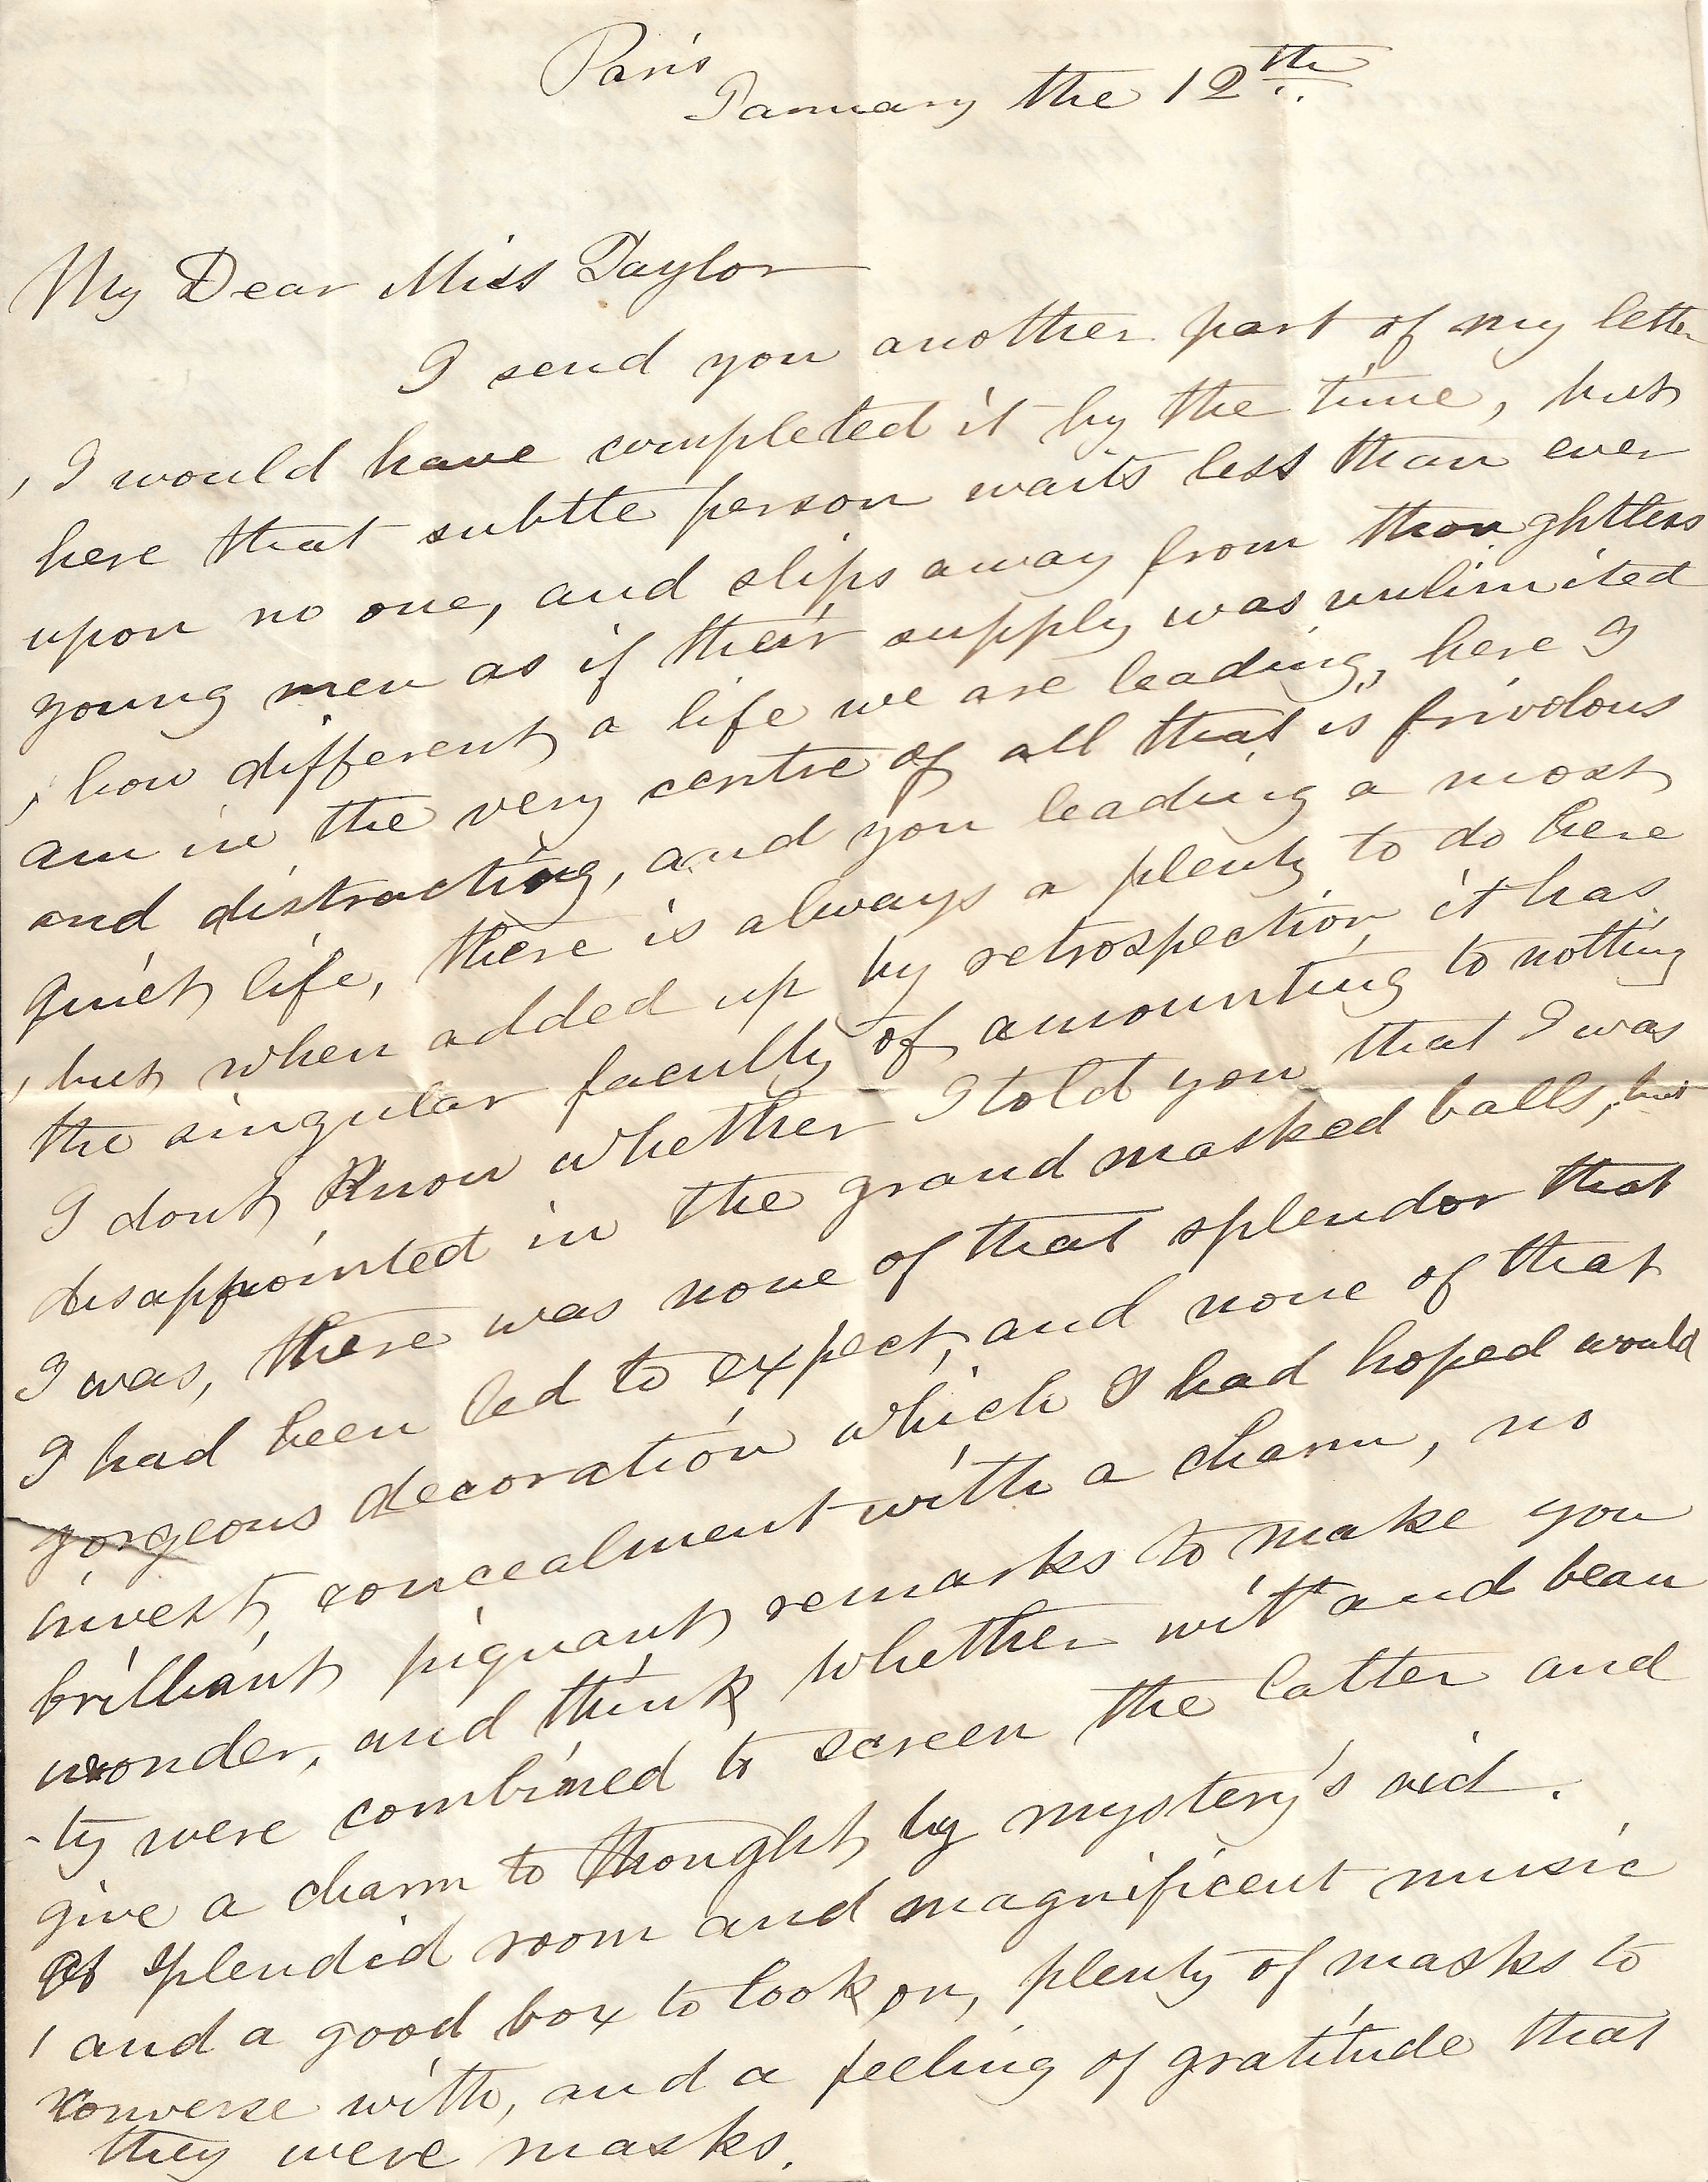 Paris
January the 12th
My Dear Miss Taylor
I send you another part of my letter
, I would have completed it by the time, but
here that subtle person waits less than ever
upon no one, and slips away from thoughtless
young men as if their supply was unlimited
, how different a life we are leading, here I
am in the very centre of all that is frivolous
and distracting, and you leading a most
quiet life, there is always a plenty to do here
, but when added up by retrospection it has
the singular faculty of amounting to nothing
I dont know whether I told you that I was
disappointed in the grand masked balls, but
I was, there was none of that splendor that
I had been led to expect, and none of that
gorgeous decoration which I had hoped would
invest concealment with a charm, no
brilliant piquant remarks to make you
wonder, and think whether wit and beau
-ty were combined to screen the latter and
give a charm to thought by mystery's aid.
A splendid room and magnificent music
, and a good box to look on, plenty of masks to
converse with, and a feeling of gratitude that
they were masks.